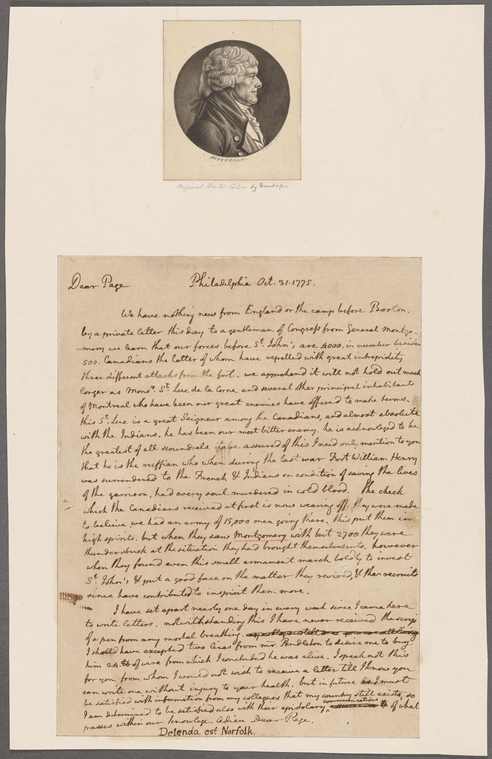 JEFFERSON.
Dear Page Philadelphia Oct. 31. 1775.
We have nothing new from England or the camp before Boston.
by a private letter this day to a gentleman of Congress from General Montgo-
-mery we learn that our forces before St. John's are 4000. in number besides
500. Canadians the latter of whom have repelled with great intrepidity
three different attacks from the fort. we apprehend it will not hold out much
longer as Monsr. St. Luc de la Corne and several other principal inhabitants
of Montreal who have been our great enemies have offered to make terms.
this St. Luc is a great Seigneur among the Canadians, and almost absolute
with the Indians. he has been our most bitter enemy. he is acknoleged to be
the greatest of all scoundrels. to be assured of this I need only mention to you
that he is the ruffian who when during the last war Fort William Henry
was surrendered to the French & Indians on condition of saving the lives
of the garrison, had every soul murdered in cold blood. The check
which the Canadians received at first is now wearing off. they were made
to believe we had an army of 15,000 men going there. this put them in
high spirits. but when they saw Montgomery with but 2700 they were
thunderstruck at the situation they had brought themselves into. however
when they found even this small armament march boldly to invest
St. John's & put a good face on the matter they revived, & their recruits
since have contributed to inspirit them more.
I have set apart nearly one day in every week since I came here
to write letters. notwithstanding this I have never received the scrip
of a pen from any mortal breathing.
I should have excepted two lines from mr Pendleton to desire me to buy
him 24. lb of wire from which I concluded he was alive. I speak not this
for you, from whom I would not wish to receive a letter till I know you
can write one without injury to your health. but in future as I must
be satisfied with information from my collegues that my country still exists, so
I am determined to be satisfied also with their epistolary communications of what
passes within our knowlege. Adieu Dear Page.
Delenda est Norfolk.